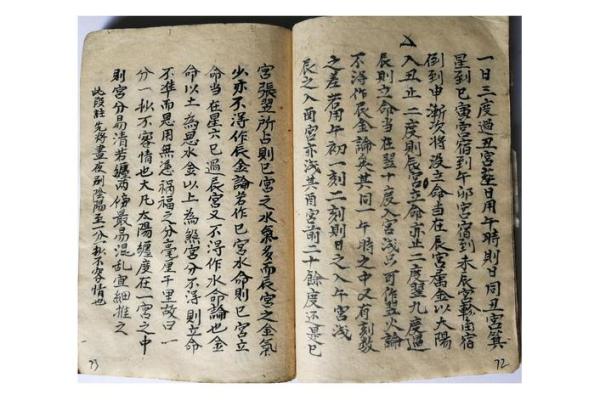 一日三度過丑宮若日用午時則日同丑宮箕
星到巳寅宮宿到午卯宮宿到未辰宮軫角宿
倒到申漸次將沒立命當在辰宮属金以太陽
入丑止二度則辰宮立命亦止二度翌九度過
辰則立命當在翌十度入宮浅只可作火論
不得作辰金論矣其同一午時之中又有刻数
之差若用午初一刻二刻則日之入午宮浅
辰之入酉宮亦浅其酉宮前二十餘度还是巳
72
宮張翌所占則巳宮之水氣多而辰宮之金氣
少亦不得作辰金論若作巳宮水命則巳宮立
命當在星六巳過辰宮又不得作水命論也金
命以土為恩水金以上為煞宮分不得則立命
不準而恩用無憑禍福之分毫厘千里故曰一
分一抄不容情也大凡太陽纏度在一宮之中
則宮分易清若纏两傍最易混乱宜細推之
此段註先將晝夜刻陰陽至一分一抄不容情也
73